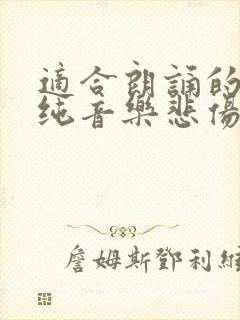 適合朗誦的
纯音樂悲傷
詹姆斯鄧利維